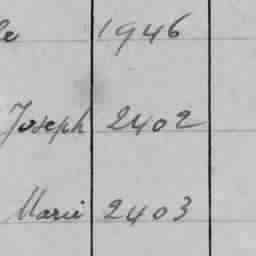 le 1946
Joseph 2402
Marie 2403